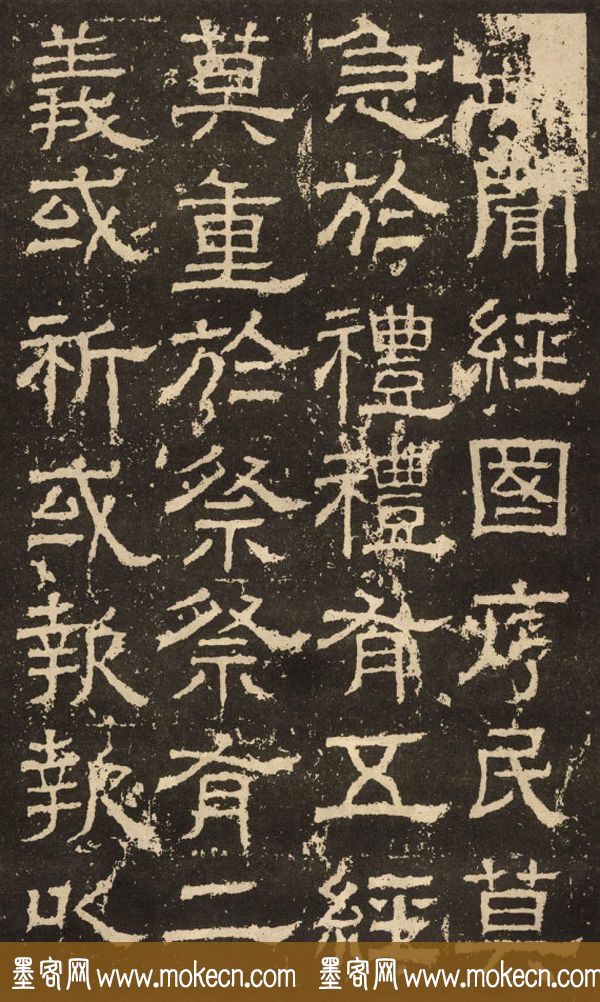 聞經國序民莫
急於禮禮有五經
莫重於祭祭有二
義或祈或報報以
墨客网 www.mokecn.com 墨客网 www.mokecn.com